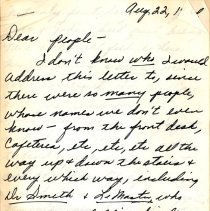 Aug. 22, 1
Dear people —
I don't know who I would
address this letter to, since
there were so many people,
whose names we don't even
know — from the front desk,
Cafeteria, etc, etc, etc all the
way up & down the stairs &
every which way, including
Dr Smeth & LeMaster, who